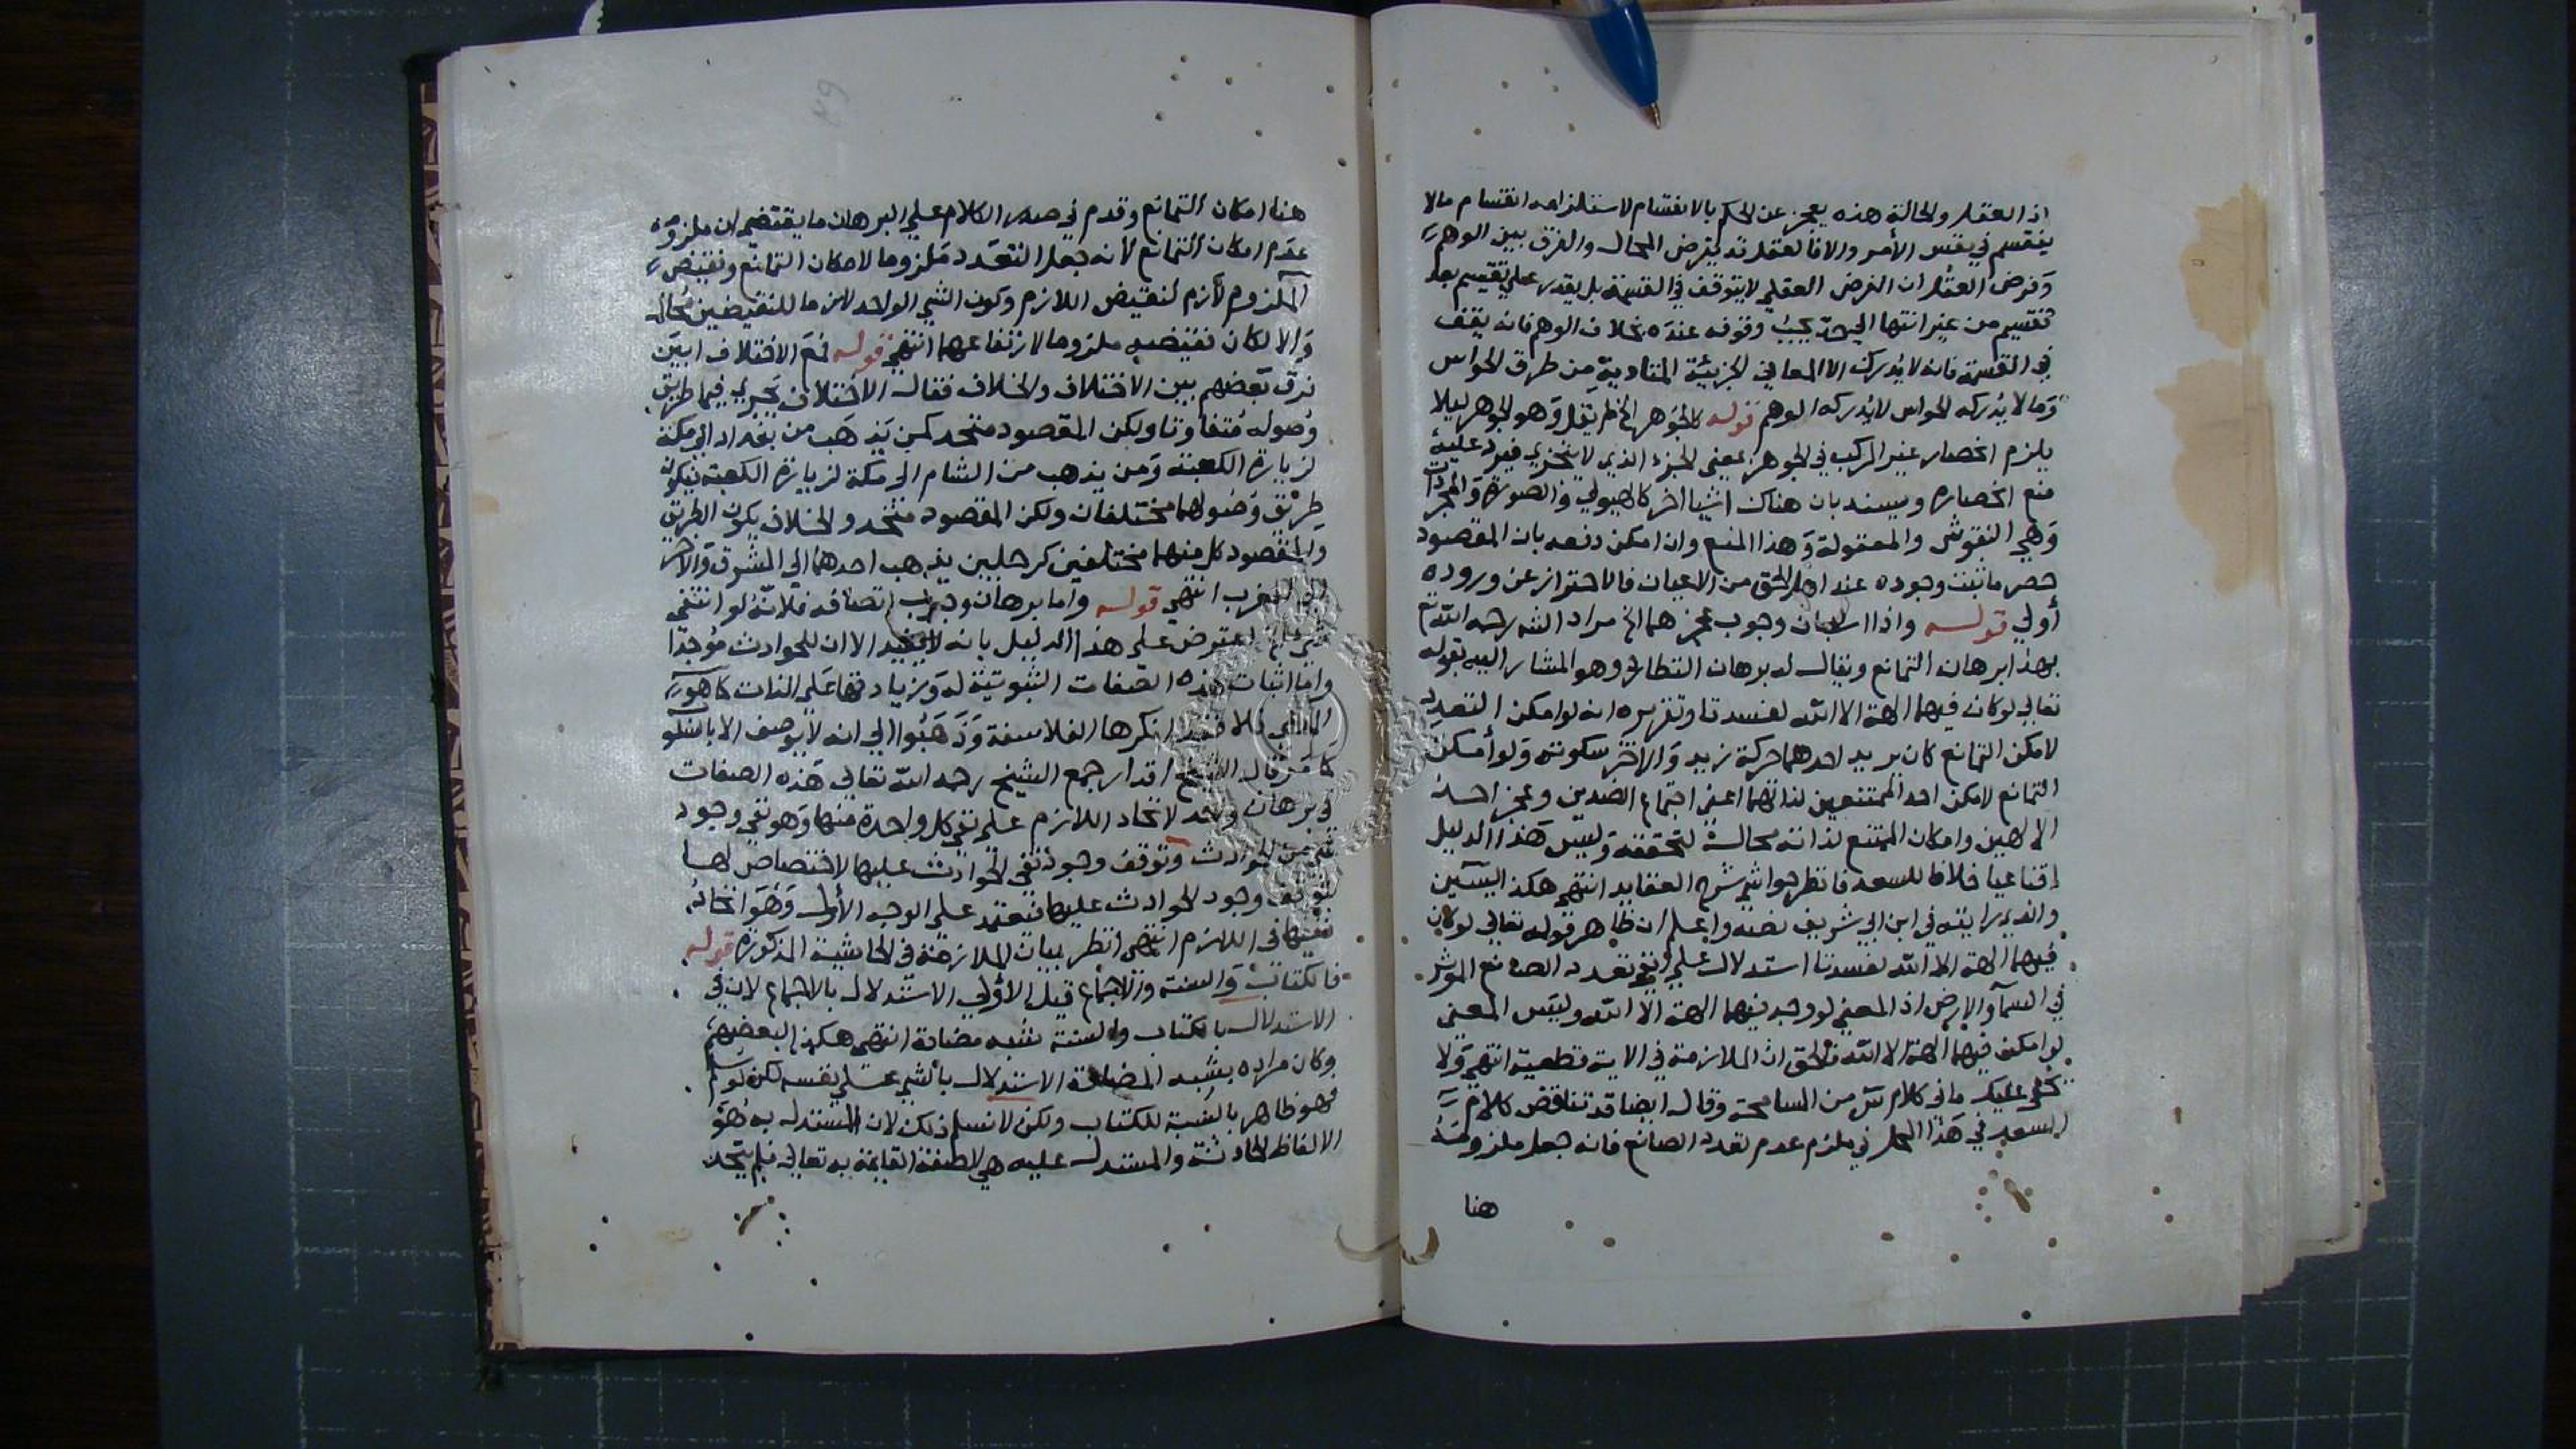 اذ العقل والحالة هذه يعجز عن الحكم بالانقسام لاستلزامه انقسام مالا
ينقسم في نفس الأمر والا فالعقل قد يفرض المحال والفرق بين الوهم
وفرض العقل ان الفرض العقلي لا يتوقف في القسمة بل يقدر على تقسيم بعد
تقسيم من غير انتها الي حد يجب وقوفه عنده بخلاف الوهم فانه يقف
في القسمة فانه لا يدرك الا المعاني الجزئية المتادية من طرق الحواس
وما لا يدركه الحواس لا يدركه الوهم قوله كالجوهر الخ لم يقل وهو الجوهر ليلا
يلزم انحصار غير المركب في الجوهر بمعنى الجزء الذي لا يتجزي فيرد عليه
منع انحصاره ويسند بان هناك اشيا اخر كالهيولي والصورة والمجردات
وهي النفوس والمعقولة وهذا المنع وان امكن دفعه بان المقصود
حصر ما ثبت وجوده عند اهل الحق من الاعيان فالاحتراز عن وروده
أولي قوله واذا استبان وجوب عجزهما الخ مراد الش رحمه الله تع
بهذا برهان التمانع ويقال له برهان التطارد وهو المشار اليه بقوله
تعالي لو كان فيهما الهة الا الله لفسدتا وتقريره انه لو امكن التعدد
لامكن التمانع كان يريد احدهما حركة زيد والاخر سكونه ولو أمكن
التمانع لامكن احد الممتنعين لذاتهما اعني اجتماع الضدين وعجز احد
الالهين وامكان الممتنع لذاته محالة لتحققه وليس هذا الدليل
إقناعيا خلافا للسعد فانظر حواشي شرح العقايد انتهى هكذا
والذي رايته في ابن ابي شريف نصه واعلم ان ظاهر قوله تعالي لو كان
فيهما الهة الا الله لفسدتا استدلال علي نفي تعدد الصانع الموثر
في السمآ والارض اذ المعني لو وجد فيهما الهة الا الله وليس المعني
لو امكن فيهما الهة الا الله فالحق ان الملازمة في الاية قطعية انتهي ولا
يخفى عليك ما في كلام س من المسامحة وقال ايضا قد تناقض كلام
السعد في هذا المحل في ملزم عدم تعدد الصانع فانه جعل ملزومه
هنا
هنا امكان التمانع وقدم في صدر الكلام علي البرهان ما يقتضي ان ملزومه
عدم امكان التمانع لأنه جعل التعدد ملزوما لامكان التمانع ونقيض
الملزوم لأزم لنقيض اللازم وكون الشي الواحد لازما للنقيضين محال
والا لكان نقيضه ملزوما لارتفاعهما انتهي قوله فمع الاختلاف ابين
فرق بعضهم بين الاختلاف والخلاف فقال الاختلاف يجري فيما طريق
وصوله متفاوتا ويكن المقصود متحد كمن يذهب من بغداد الي مكة
لزيارة الكعبة ومن يذهب من الشام الى مكة لزيارة الكعبة يكون
طريق وصولهما مختلفان ولكن المقصود متحد والخلاف يكون الطريق
والمقصود كل منهما مختلفين كرجلين يذهب احدهما الي المشرق والآخر
الي المغرب انتهي قوله واما برهان وجوب اتصافه فلانه لو انتفى
شي الخ اعترض على هذا الدليل بانه لا يفيد الا ان للحوادث موجدا
واما اثبات هذه الصفات الثبوتية له وزيادتها علي الذات كما هو
فلا فقد انكرها الفلاسفة وذهبوا الي انه لا يوصف الا بالسلو
كما مر قال الشيخ اقدار جمع الشيخ رحمه الله تعالي هذه الصفات
في برهان واحد لاتحاد اللازم علي نفي كل واحدة منها وهو نفي وجود
شي من الحوادث وتوقف وجود نفي الحوادث عليها لاختصاص لها
بتوقف وجود الحوادث عليها فنعتمد علي الوجه الأول وهو اتحاد
نفيها في اللازم انتهى انظر بيان الملازمة في الحاشية المذكورة قوله
فالكتاب والسنة والاجماع قيل الأولي الاستدلال بالاجماع لان في
الاستدلال بالكتاب والسنة شبه مصادرة انتهي هكذا لبعضهم
وكان مراده بشبه المصادرة الاستدلال بالشي علي نفسه لكن لو سلم
فهو ظاهر بالنسبة للكتاب ولكن لا نسلم ذلك لان المستدل به هو
الالفاظ الحادثة والمستدل عليه هي الصفة القايمة به تعالي فلم يتحد